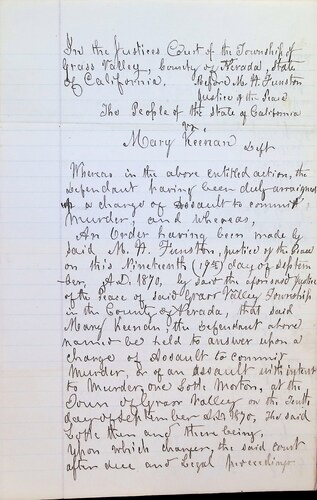 In the Justices Court of the Township of
Grass Valley, County of Nevada, State
of California. Before M. H. Funston
Justice of the Peace
The People of the State of California
vs.
Mary Keenan Deft
Whereas in the above entitled action, the
defendant having been duly arraigned
upon a charge of assault to commit
Murder; and whereas,
An Order having been made by
said M. H. Funston, Justice of the Peace
on this Nineteenth (19th) day of Septem
ber, A.D. 1870, by said the aforesaid Justice
of the Peace of said Grass Valley Township
in the County of Nevada, that said
Mary Keenan, the defendant above
named be held to answer upon a
charge of assault to commit
Murder, or of an assault with intent
to Murder, one Lotte Morton, at the
Town of Grass Valley on the Tenth
day of September A.D. 1870, the said
Lotte then and there being,
Upon which charge, the said court
after due and legal proceedings